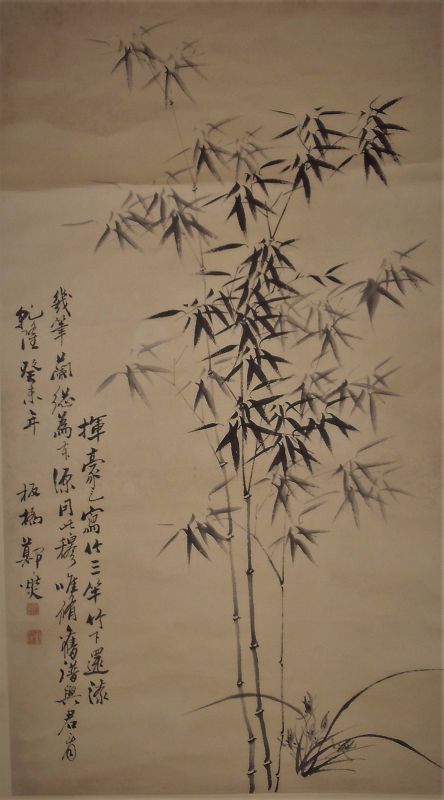 揮豪已寫竹三竿竹下還添
幾筆蘭總為本源同七穆唯脩舊譜與君看
乾隆癸未年 板橋鄭燮